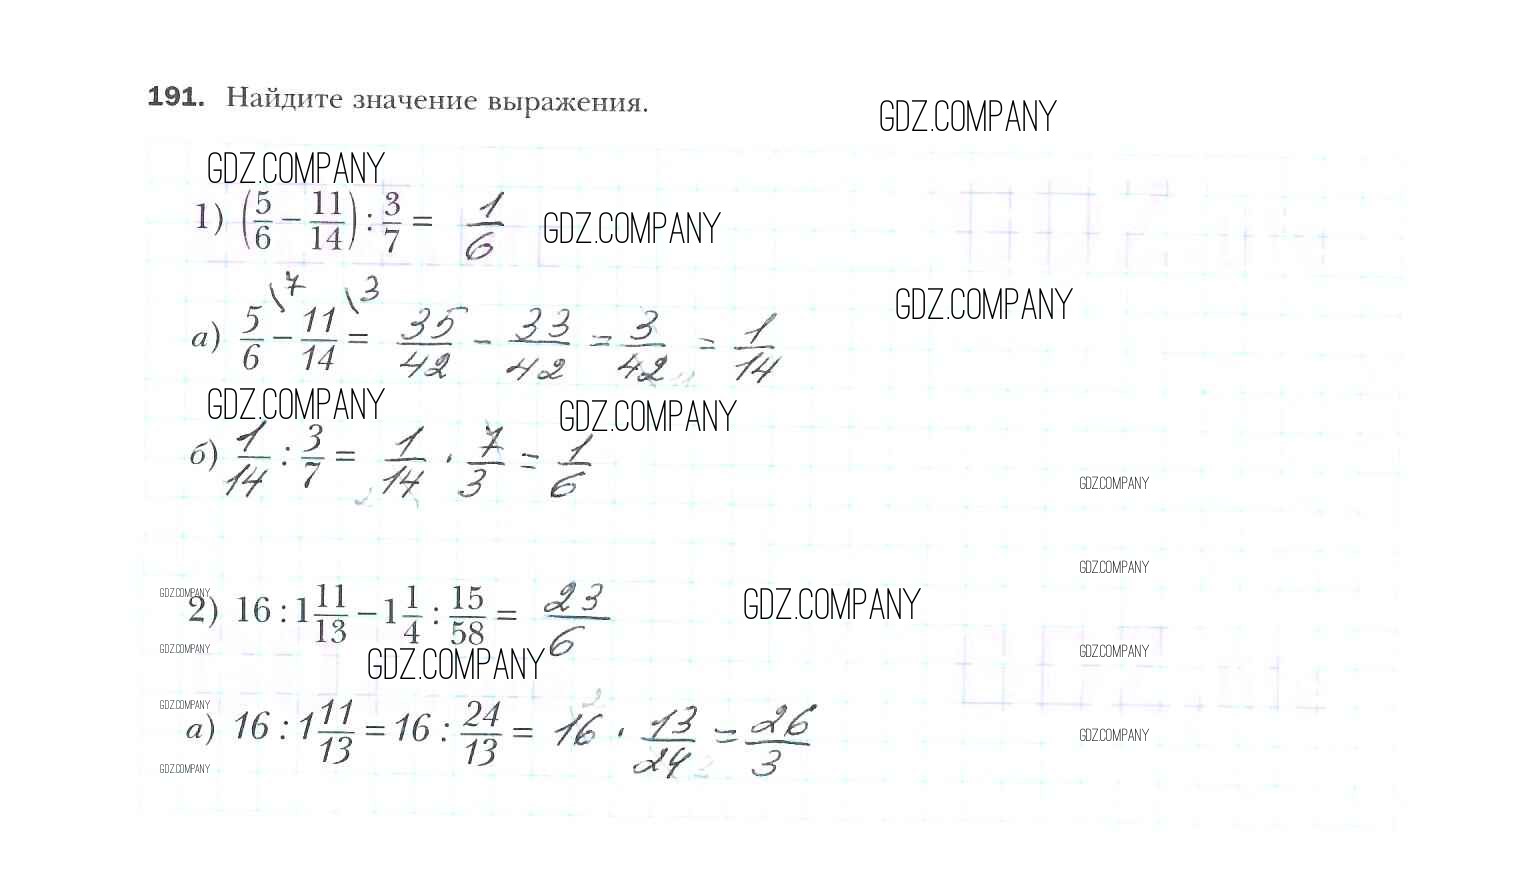 191. Найдите значение выражения.
GDZ.COMPANY
GDZ.COMPANY
1) (5/6 − 11/14) : 3/7 = 1/6
GDZ.COMPANY
GDZ.COMPANY
а) 5/6 \7 − 11/14 \3 = 35/42 − 33/42 = 3/42 = 1/14
GDZ.COMPANY
GDZ.COMPANY
б) 1/14 : 3/7 = 1/14 · 7/3 = 1/6
GDZ.COMPANY
GDZ.COMPANY
GDZ.COMPANY
GDZ.COMPANY
2) 16 : 1 11/13 − 1 1/4 : 15/58 = 23/6
GDZ.COMPANY
GDZ.COMPANY
GDZ.COMPANY
GDZ.COMPANY
а) 16 : 1 11/13 = 16 : 24/13 = 16 · 13/24 = 26/3
GDZ.COMPANY
GDZ.COMPANY